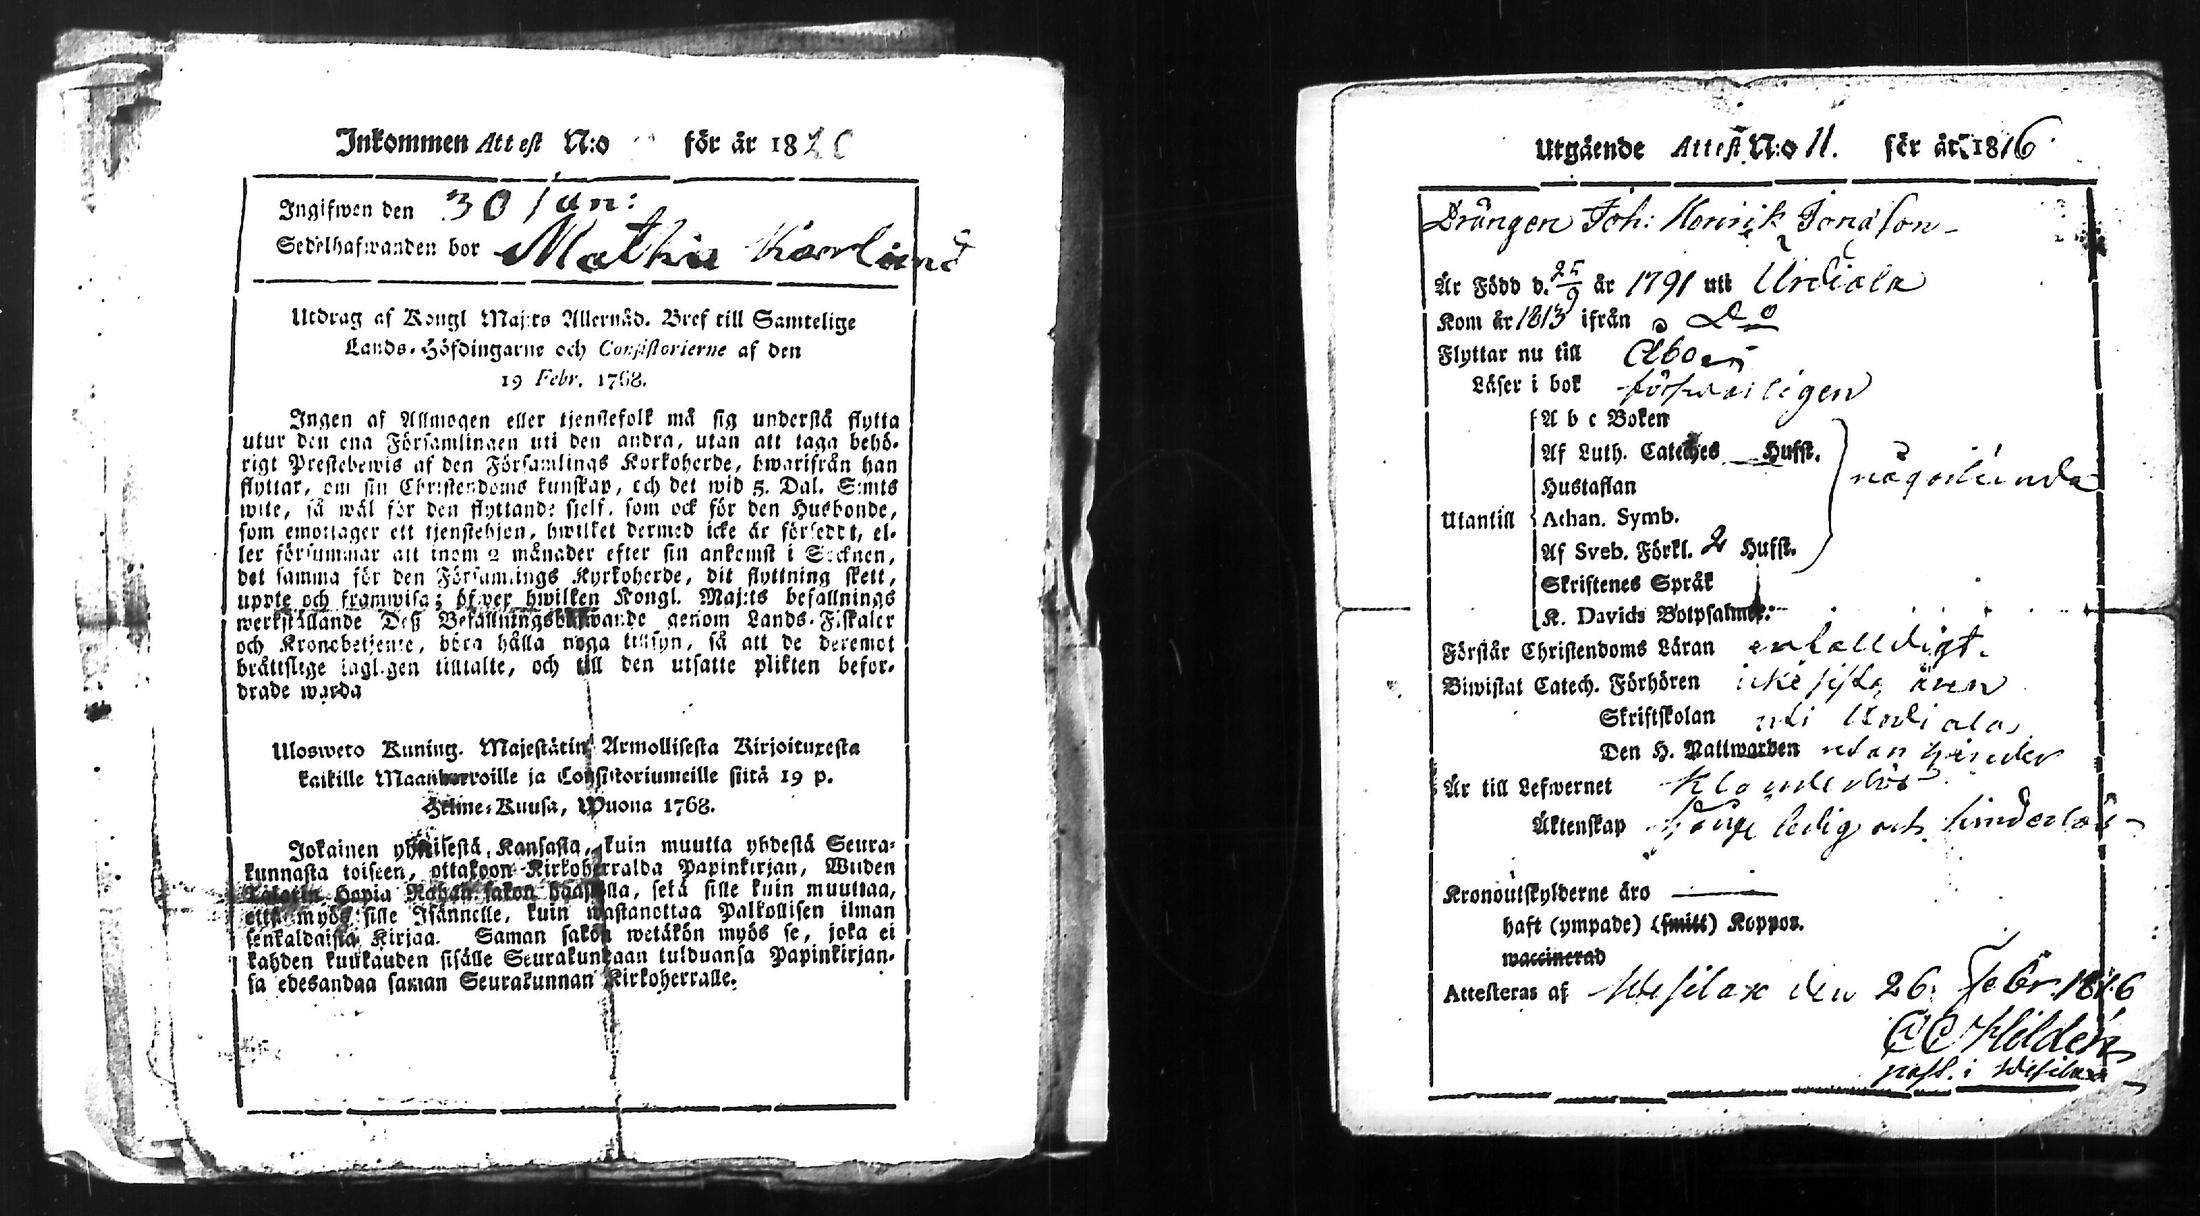 Inkommen Attest N:o för år 18
Ingifwen den 30 Jan:
Sedelhafwanden bor Mathia
Utdrag af Kongl Maj:ts Allernåd. Bref till Samtelige
Lands-Höfdingarne och Consistorierne af den
19 Febr. 1768.
Ingen af Allmogen eller tjenstefolk må sig understå flytta
utur den ena Församlingen uti den andra, utan att taga behö-
rigt Prestebewis af den Församlings Kyrkoherde, hwarifrån han
flyttar, om sin Christendoms kunskap, och det wid 5. Dal. S:mts
wite, så wäl för den flyttande sjelf, som ock för den Husbonde,
som emottager ett tjenstehjon, hwilket dermed icke är försedt, el-
ler försummar att inom 2 månader efter sin ankomst i Socknen,
det samma för den Församlings Kyrkoherde, dit flyttning skett,
uppte och framwisa; öfwer hwilken Kongl. Maj:ts befallnings
werkställande Deß Befallningshafwande genom Lands-Fiskaler
och Kronobetjente, böra hålla noga tillsyn, så att de deremot
bråttslige lagligen tilltalte, och till den utsatte plikten befor-
drade warda
Ulosweto Kuning. Majestätin Armollisesta Kirjoituxesta
kaikille Maanherroille ja Consistoriumeille siitä 19 p.
Helme-Kuusa, Wuona 1768.
Jokainen yhteisestä Kansasta, kuin muutta yhdestä Seura-
kunnasta toiseen, ottakoon Kirkoherralda Papinkirjan, Wiiden
Talarin Hopia Rahan sakon haastolla, sekä sille kuin muuttaa,
että myös sille Isännelle, kuin wastanottaa Palkollisen ilman
senkaldaista Kirjaa. Saman sakon wetäkön myös se, joka ei
kahden kuukauden sisälle Seurakundaan tulduansa Papinkirjan-
sa edesandaa saman Seurakunnan Kirkoherralle.
Utgående Attest N:o 11. för år 1816
Drängen Joh: Henrik Jonasson
Är Född d. 25/9 år 1791 uti Urdiala
Kom år 1813 ifrån Do
Flyttar nu till Åbo
Läser i bok försvarligen
A b c Boken
Af Luth. Cateches Hufst.
Hustaflan
Utantill Athan. Symb. någorlunda
Af Sveb. Förkl. 2 Hufst.
Skriftenes Språk
K. Davids Botpsalmer:
Förstår Christendoms Läran enfalldigt.
Biwistat Catech. Förhören icke sista åren
Skriftskolan uti Urdiala
Den H. Nattwarden utan hinder
Är till Lefwernet klanderlös
Äktenskap ledig och hinderlös
Kronoutskylderne äro
haft (ympade) (smitt) Koppor.
waccinerad
Attesteras af Wesilax den 26. Febr. 1816
CC Hildén
past. i Wesilax